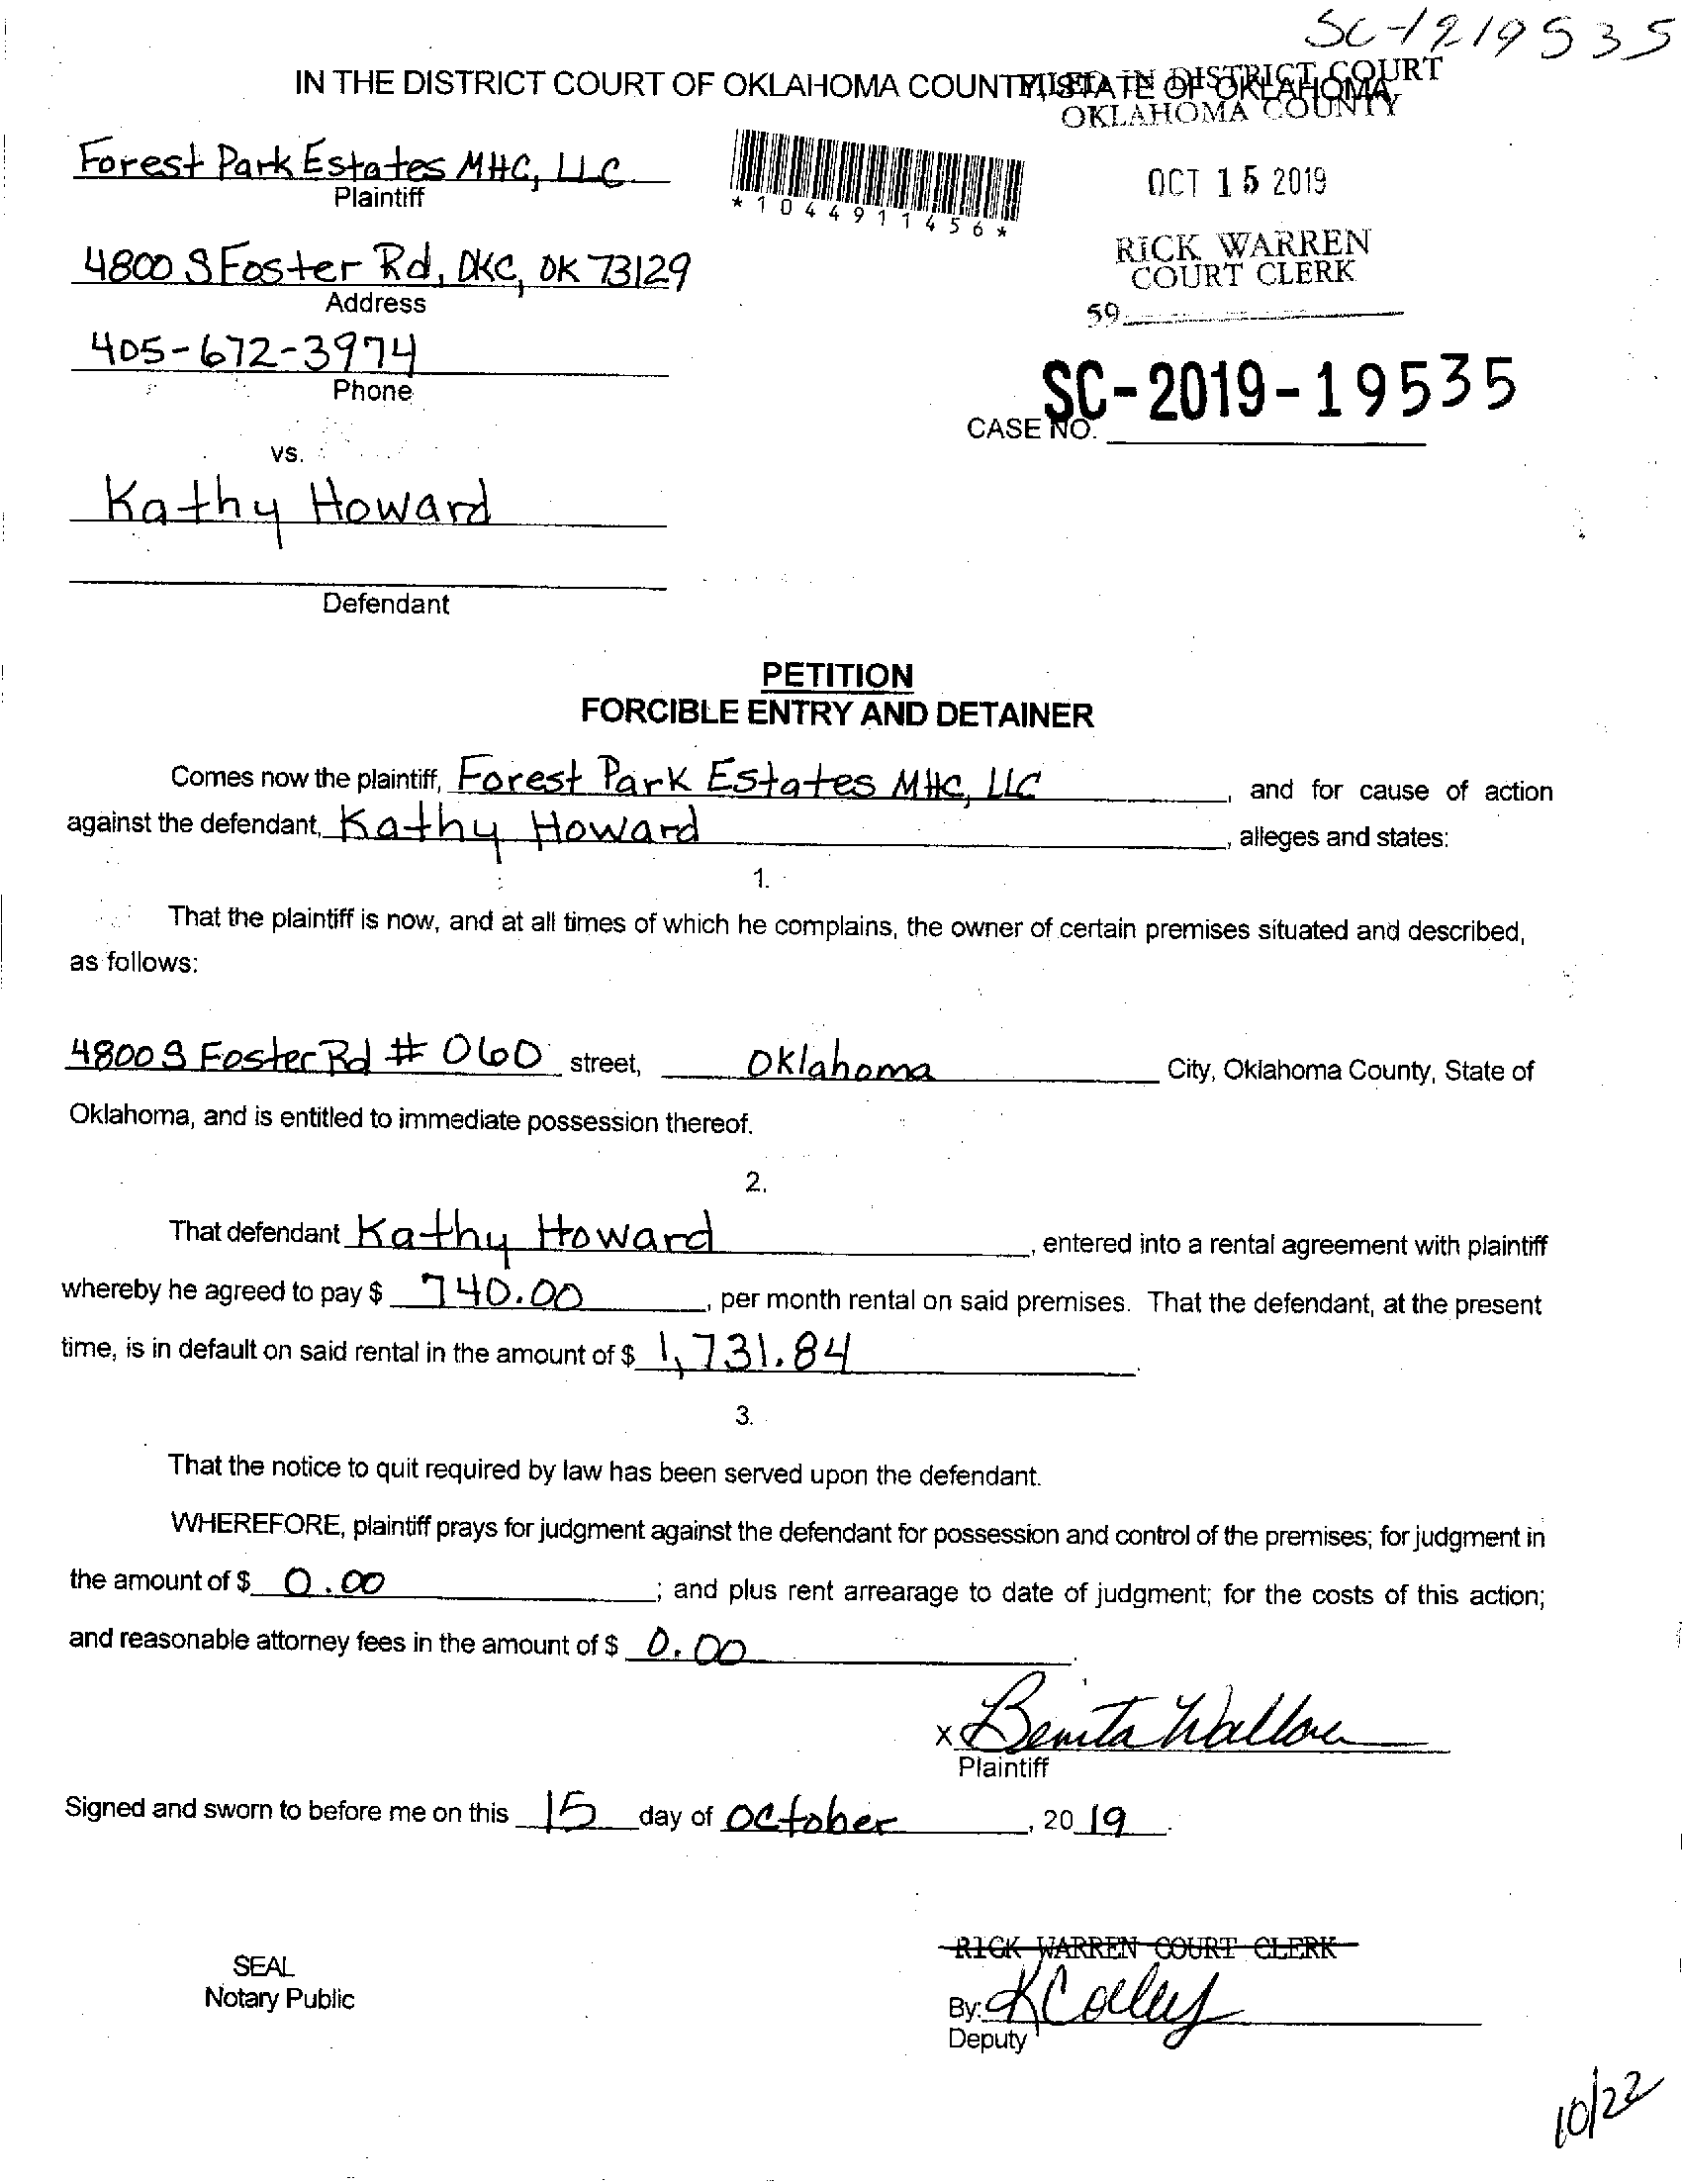 SC-1919535
IN THE DISTRICT COURT OF OKLAHOMA COUNTY, STATE OF OKLAHOMA
FILED IN DISTRICT COURT
OKLAHOMA COUNTY
Forest Park Estates MHC, LLC
Plaintiff
*1044911456*
OCT 15 2019
4800 S Foster Rd, OKC, OK 73129
Address
RICK WARREN
COURT CLERK
59
405-672-3974
Phone
CASE NO. SC-2019-19535
vs.
Kathy Howard
Defendant
PETITION
FORCIBLE ENTRY AND DETAINER
Comes now the plaintiff, Forest Park Estates MHC, LLC, and for cause of action
against the defendant, Kathy Howard, alleges and states:
1.
That the plaintiff is now, and at all times of which he complains, the owner of certain premises situated and described,
as follows:
4800 S Foster Rd # 060 street, Oklahoma City, Oklahoma County, State of
Oklahoma, and is entitled to immediate possession thereof.
2.
That defendant Kathy Howard, entered into a rental agreement with plaintiff
whereby he agreed to pay $ 740.00, per month rental on said premises. That the defendant, at the present
time, is in default on said rental in the amount of $ 1,731.84.
3.
That the notice to quit required by law has been served upon the defendant.
WHEREFORE, plaintiff prays for judgment against the defendant for possession and control of the premises; for judgment in
the amount of $ 0.00; and plus rent arrearage to date of judgment; for the costs of this action;
and reasonable attorney fees in the amount of $ 0.00.
x Benita Wallace
Plaintiff
Signed and sworn to before me on this 15 day of October, 2019.
RICK WARREN COURT CLERK
SEAL
Notary Public
By: K Colley
Deputy
10/22